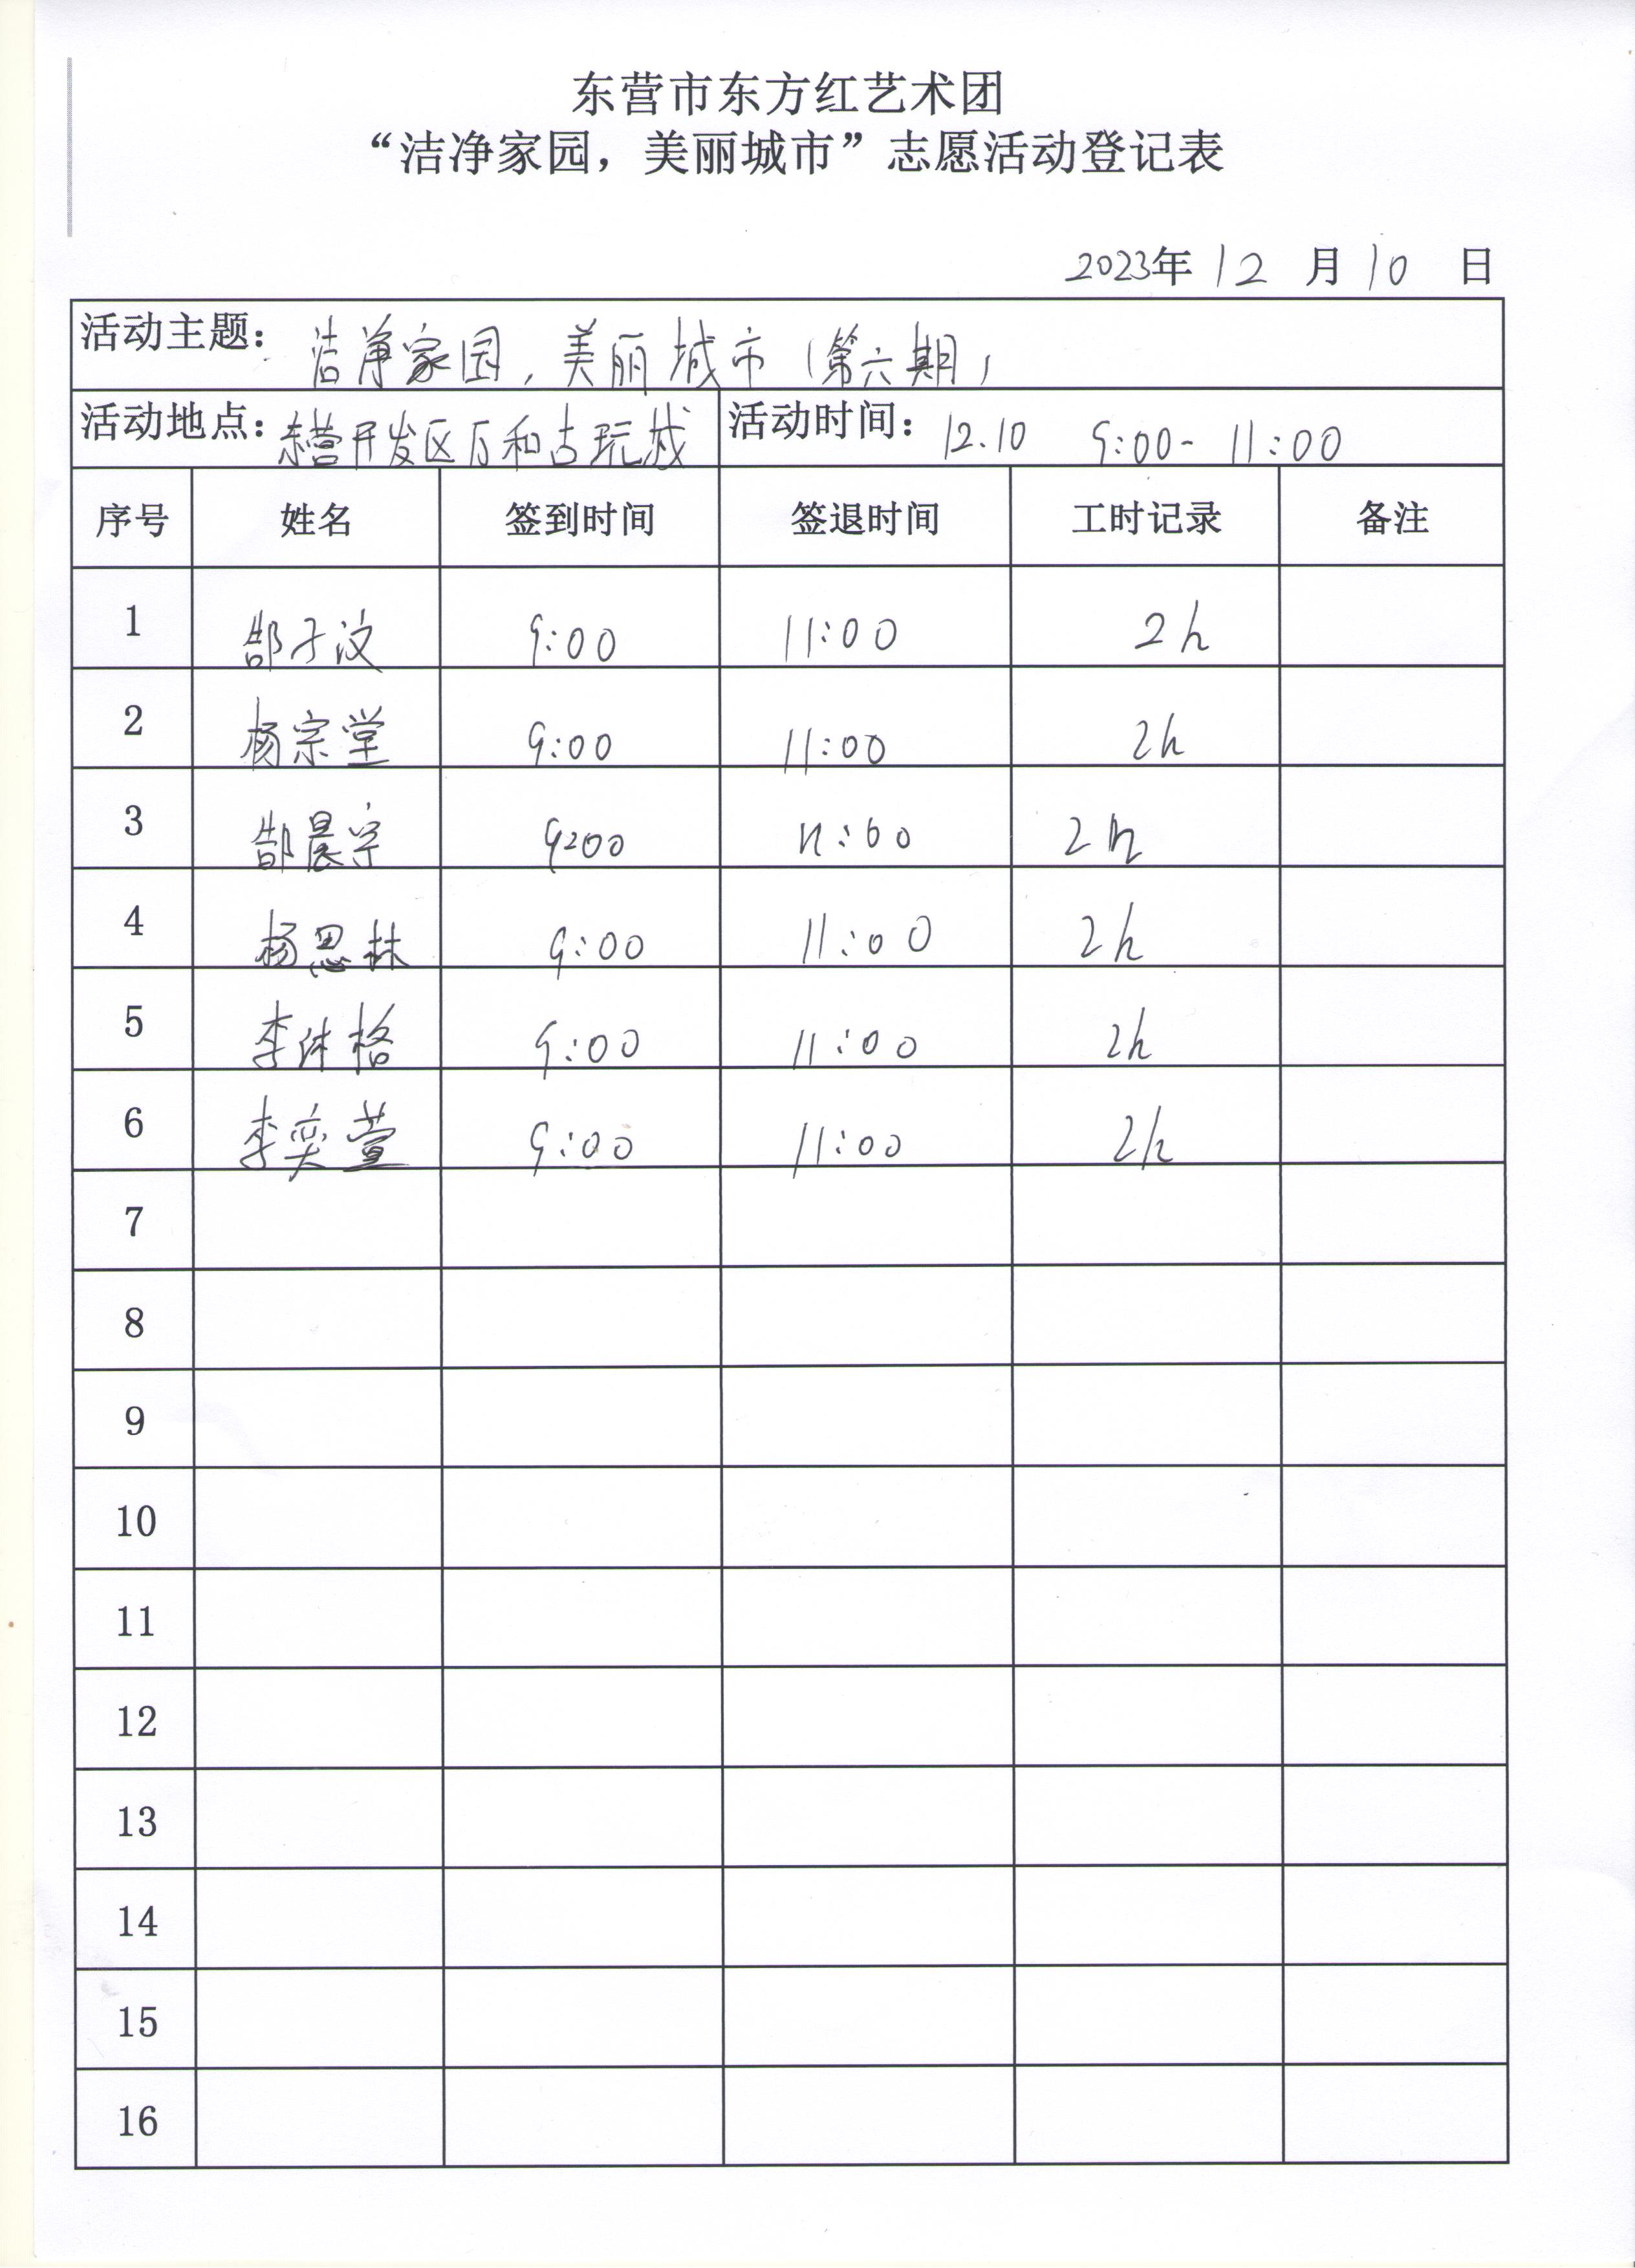 东营市东方红艺术团
“洁净家园，美丽城市”志愿活动登记表
2023年 12 月 10 日
活动主题：洁净家园，美丽城市（第六期）
活动地点：东营开发区万和古玩城 活动时间：12.10 9:00-11:00
序号 姓名 签到时间 签退时间 工时记录 备注
1 郜子汶 9:00 11:00 2h
2 杨宗堂 9:00 11:00 2h
3 郜晨宇 9:00 11:00 2h
4 杨思林 9:00 11:00 2h
5 李体格 9:00 11:00 2h
6 李奕萱 9:00 11:00 2h
7
8
9
10
11
12
13
14
15
16